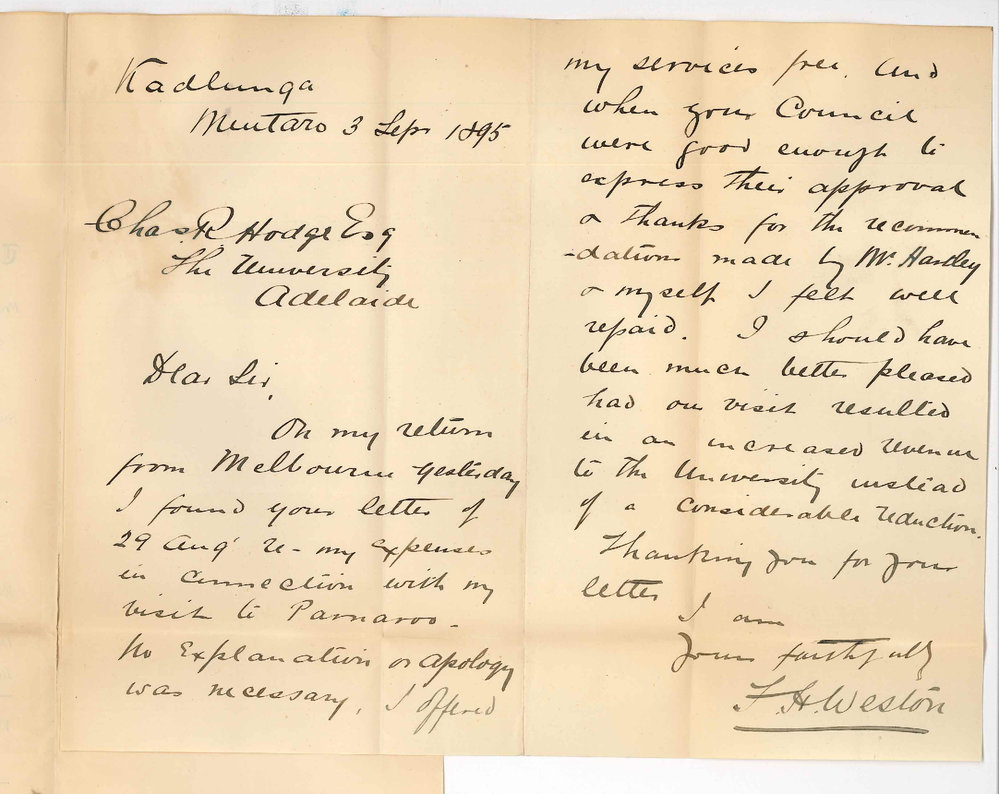 Kadlunga
Mintaro 3 Sepr 1895
Chas R Hodge Esq
The University
Adelaide
Dear Sir,
On my return
from Melbourne yesterday
I found your letter of
29 Aug' re - my expenses
in connection with my
visit to Parnaroo -
No Explanation or apology
was necessary, I offered
my services free. And
when your Council
were good enough to
express their approval
& thanks for the recommen
-dations made by Mr. Hartley
& myself I felt well
repaid. I should have
been much better pleased
had our visit resulted
in an increased revenue
to the University instead
of a considerable reduction.
Thanking you for your
letter
I am
Yours faithfully
F. H. Weston